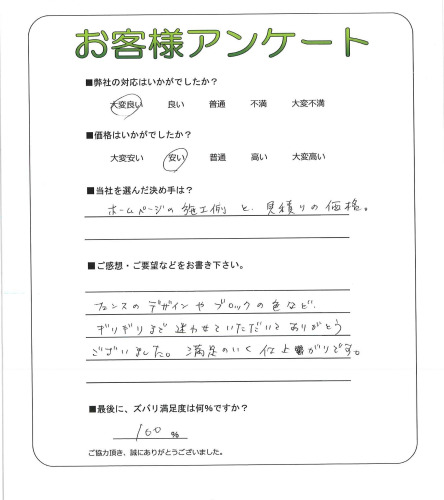 お客様アンケート
■弊社の対応はいかがでしたか？
大変良い 良い 普通 不満 大変不満
■価格はいかがでしたか？
大変安い 安い 普通 高い 大変高い
■当社を選んだ決め手は？
ホームページの施工例と、見積りの価格。
■ご感想・ご要望などをお書き下さい。
フェンスのデザインやブロックの色など、
ギリギリまで迷わせていただいてありがとう
ございました。満足のいく仕上がりです。
■最後に、ズバリ満足度は何％ですか？
100 ％
ご協力頂き、誠にありがとうございました。